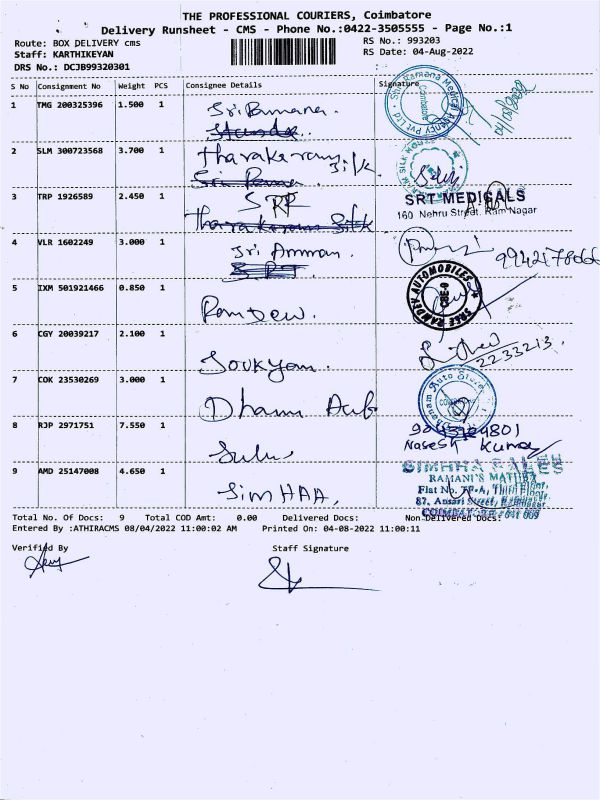 THE PROFESSIONAL COURIERS, Coimbatore
Delivery Runsheet - CMS - Phone No.:0422-3505555 - Page No.:1
Route: BOX DELIVERY cms RS No.: 993203
Staff: KARTHIKEYAN RS Date: 04-Aug-2022
DRS No.: DCJB99320301
S No Consignment No Weight PCS Consignee Details Signature
1 TMG 200325396 1.500 1 Sri Ramana.
2 SLM 300723568 3.700 1 Tharakeram Silk.
3 TRP 1926589 2.450 1 SRT
SRT MEDICALS
160 Nehru Street, Ram Nagar
4 VLR 1602249 3.000 1 Sri Amman.
5 IXM 501921466 0.850 1 Ramdew.
SREE RAMDEV AUTOMOBILES
CBE-9
6 CGY 20039217 2.100 1 Soukyam.
2233213.
7 COK 23530269 3.000 1 Dhanu Aub
8 RJP 2971751 7.550 1 Sulu
Kumar
9 AMD 25147008 4.650 1 SimHAA.
SIMHHA SALES
RAMANI'S
Flat No. TF-A, Third Floor,
87, Ansari Street, Ramnagar
COIMBATORE-641 009
Total No. Of Docs: 9 Total COD Amt: 0.00 Delivered Docs: Non-Delivered Docs:
Entered By :ATHIRACMS 08/04/2022 11:00:02 AM Printed On: 04-08-2022 11:00:11
Verified By Staff Signature